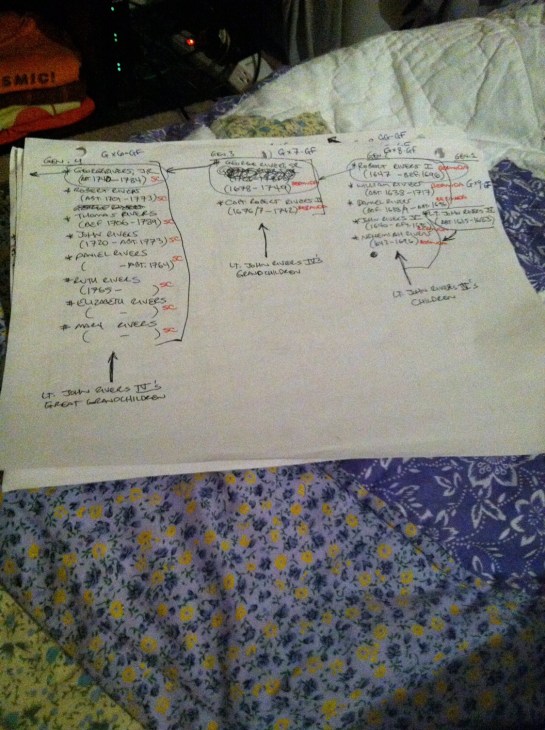 SMIC!
GEN. 4 GX6-GF
* GEORGE RIVERS, JR.
(BEF. 1740 - 1784) SC
* ROBERT RIVERS
(ABT. 1701 - 1773) SC
* THOMAS RIVERS
(BEF 1706 - 1789) SC
* JOHN RIVERS
(1720 - ABT. 1773) SC
* DANIEL RIVERS
( - ABT. 1764) SC
* RUTH RIVERS
(1765 - ) SC
* ELIZABETH RIVERS
( - ) SC
* MARY RIVERS
( - ) SC
LT. JOHN RIVERS IV'S
GREAT GRANDCHILDREN
GEN 3 GX7-GF
* GEORGE RIVERS, SR.
(1678 - 1749)
* CAPT ROBERT RIVERS II
(1676/7 - 1742)
LT. JOHN RIVERS IV'S
GRANDCHILDREN
GG-GF
GX8-GF
* ROBERT RIVERS I
(1647 - BEF. 1696)
* WILLIAM RIVERS
(ABT. 1638 - 1717)
GX9 GF
* DANIEL RIVERS
* JOHN RIVERS V
LT. JOHN RIVERS IV
* NEHEMIAH RIVERS
LT. JOHN RIVERS IV'S
CHILDREN